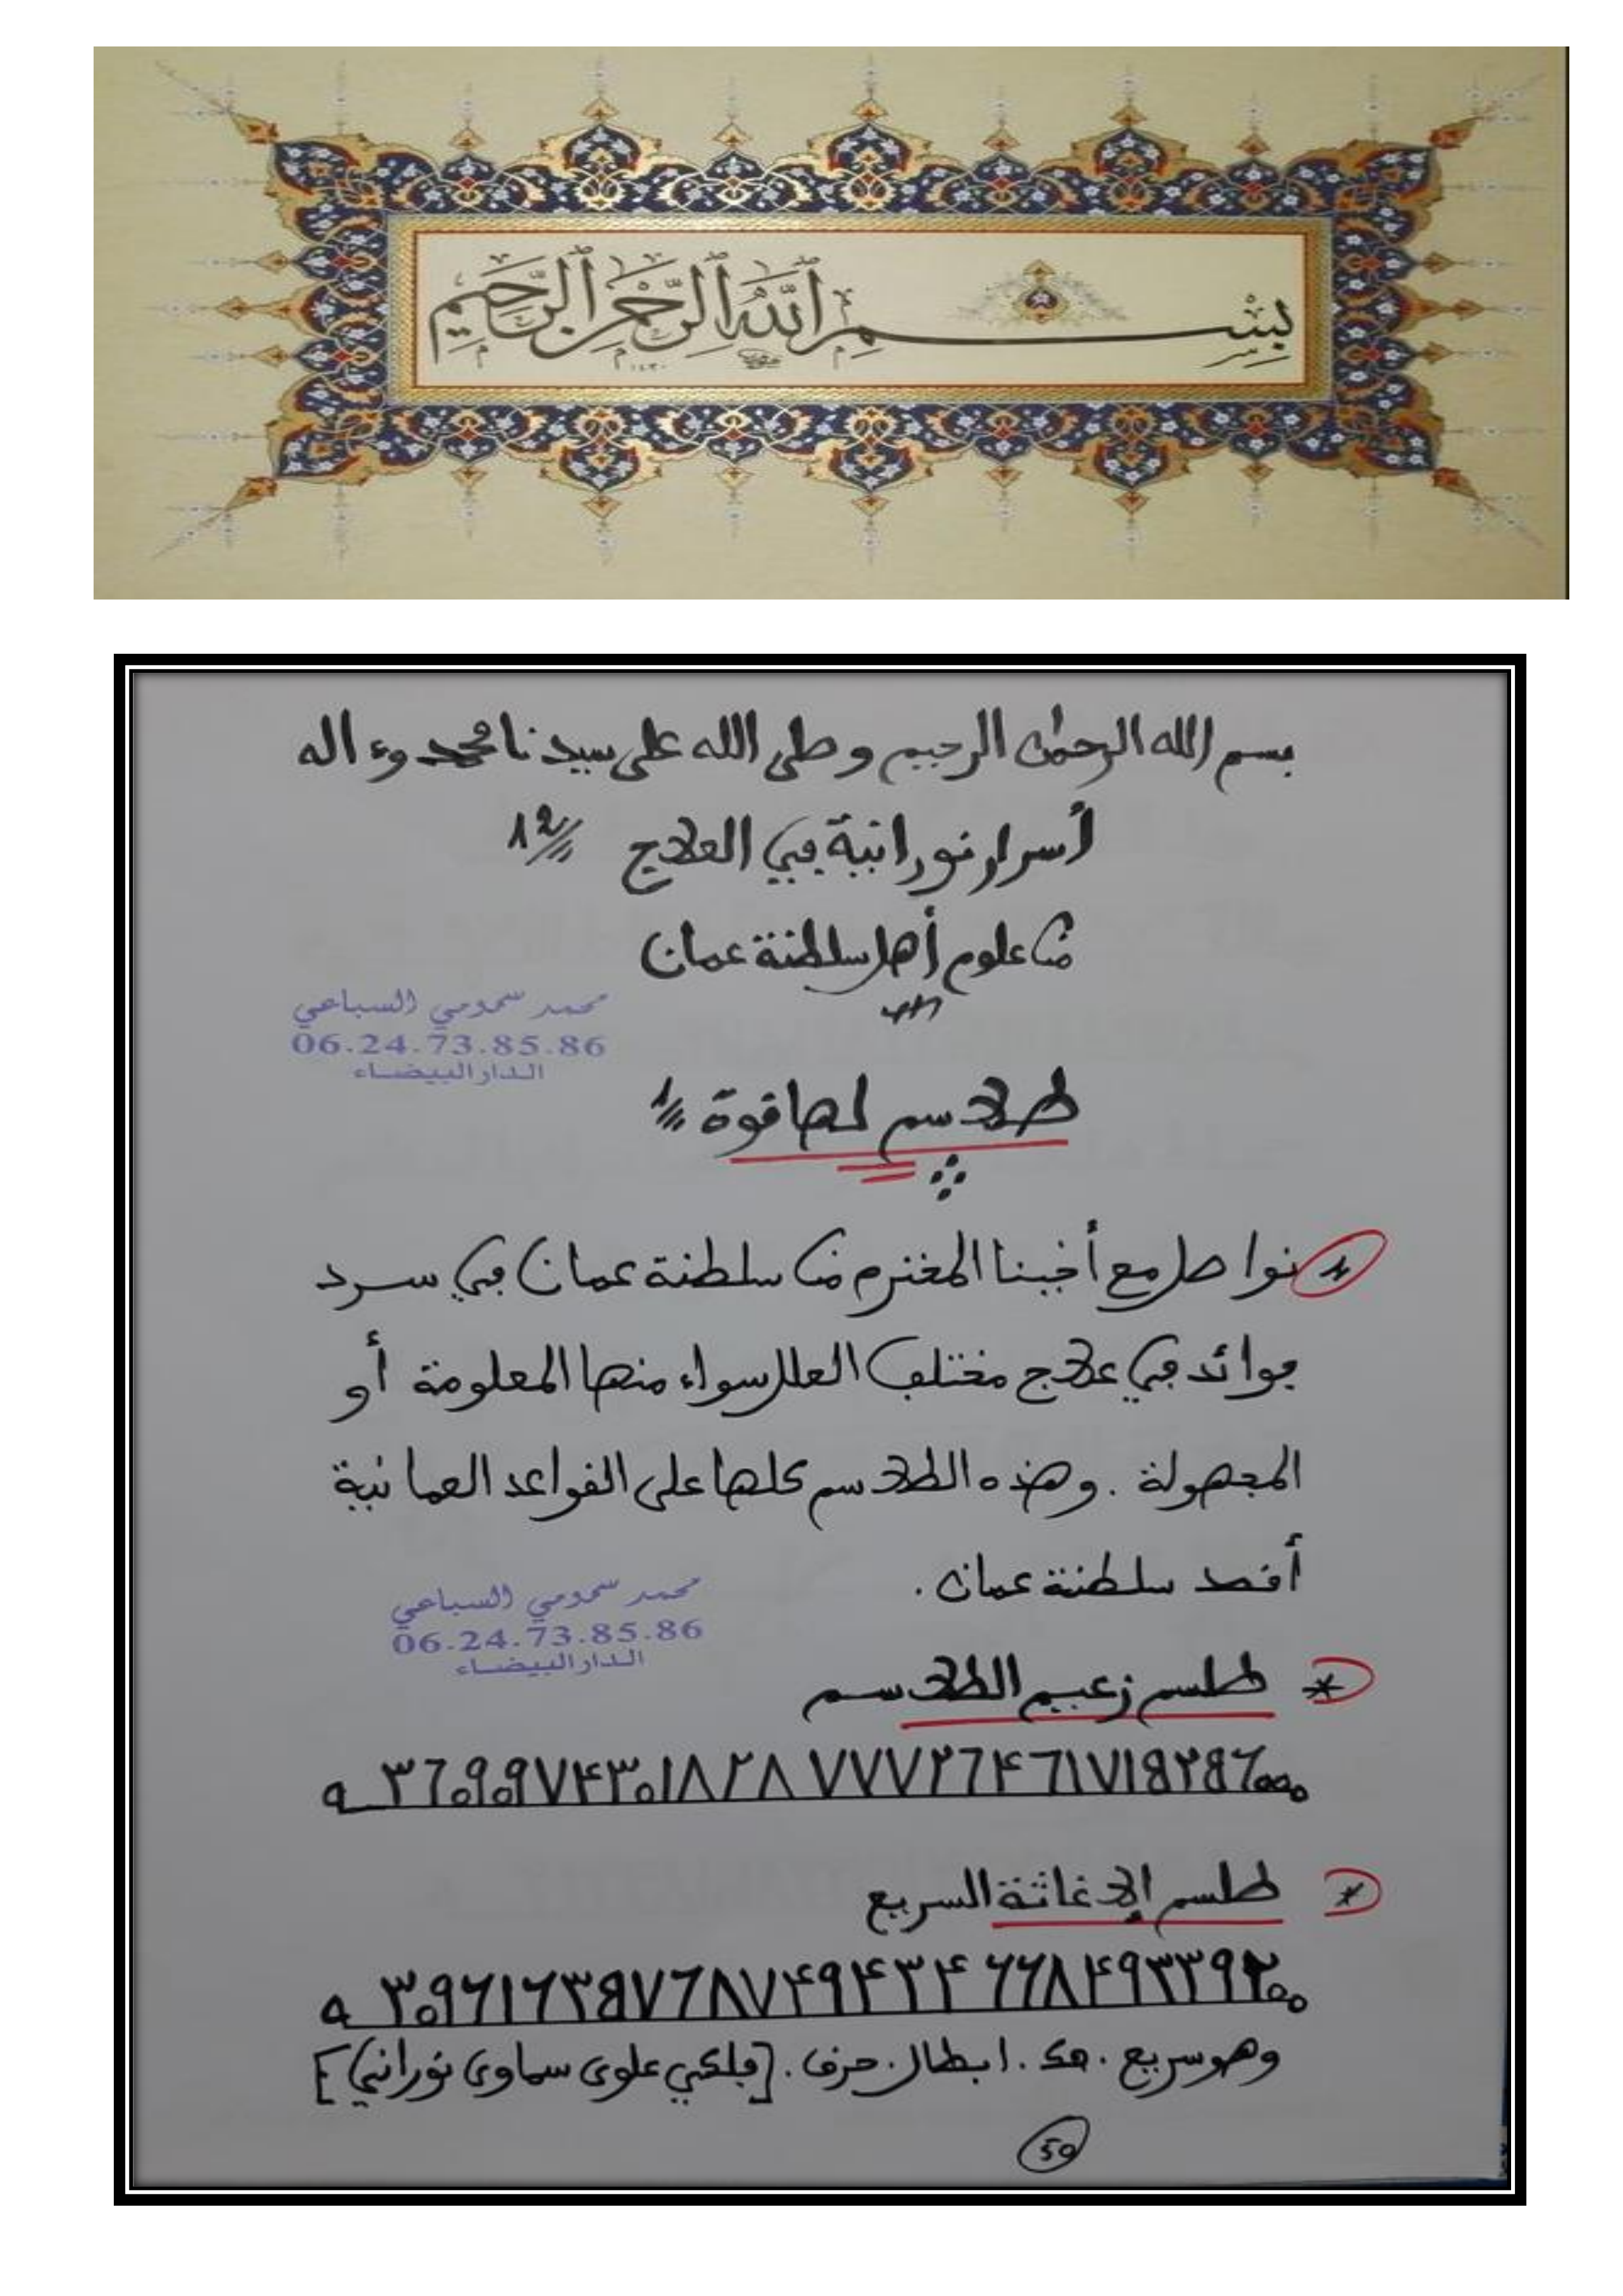 بِسْمِ ٱللَّهِ ٱلرَّحْمَٰنِ ٱلرَّحِيمِ
١٤٣٠
بسم الله الرحمٰن الرحيم وصلى الله على سيدنا محمد وءاله
أسرار نورانية في العلاج 12
من علوم أهل سلطنة عمان
محمد سمومي السباعي
06.24.73.85.86
الدار البيضاء
طلاسم لها قوة 1
* نواصل مع أخينا المحترم من سلطنة عمان في سرد
فوائد في علاج مختلف العلل سواء منها المعلومة أو
المجهولة . وهذه الطلاسم كلها على القواعد العمانية
أقصد سلطنة عمان .
محمد سمومي السباعي
06.24.73.85.86
الدار البيضاء
* طلسم زعيم الطلاسم
* طلسم الإغاثة السريع
وهو سريع . فك . ابطال . حرق . [فلكي علوى سماوى نوراني]
50